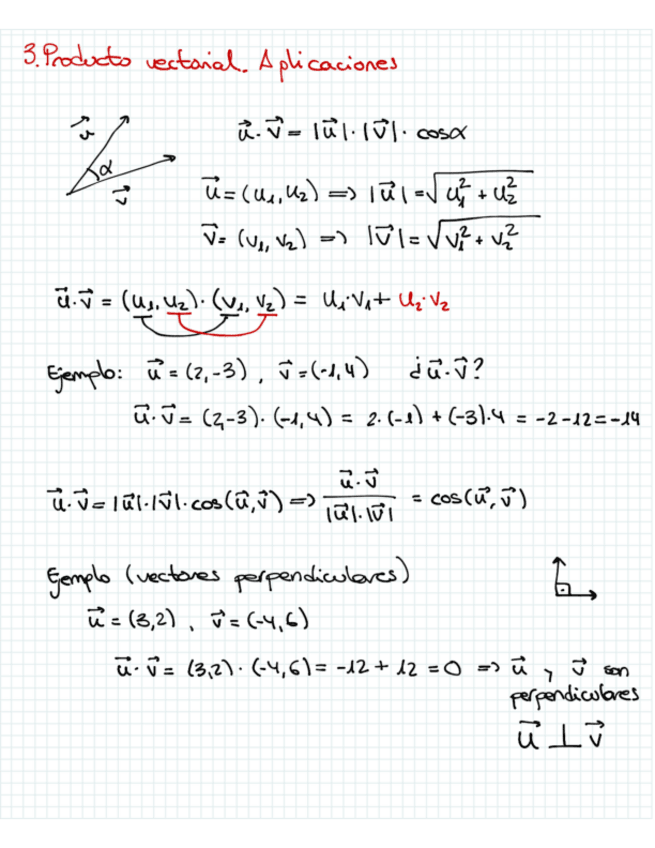 3. Producto vectorial. Aplicaciones
v⃗
α
v⃗
u⃗·v⃗ = |u⃗|·|v⃗|· cosα
u⃗ = (u₁, u₂) => |u⃗| = √(u₁² + u₂²)
v⃗ = (v₁, v₂) => |v⃗| = √(v₁² + v₂²)
u⃗·v⃗ = (u₁, u₂)·(v₁, v₂) = u₁·v₁ + u₂·v₂
Ejemplo: u⃗ = (2,-3) , v⃗ = (-1,4) ¿u⃗·v⃗?
u⃗·v⃗ = (2,-3)·(-1,4) = 2·(-1) + (-3)·4 = -2-12 = -14
u⃗·v⃗ = |u⃗|·|v⃗|·cos(u⃗,v⃗) => u⃗·v⃗ / |u⃗|·|v⃗| = cos(u⃗,v⃗)
Ejemplo (vectores perpendiculares)
u⃗ = (3,2) , v⃗ = (-4,6)
u⃗·v⃗ = (3,2)·(-4,6) = -12 + 12 = 0 => u⃗ y v⃗ son
perpendiculares
u⃗ ⊥ v⃗